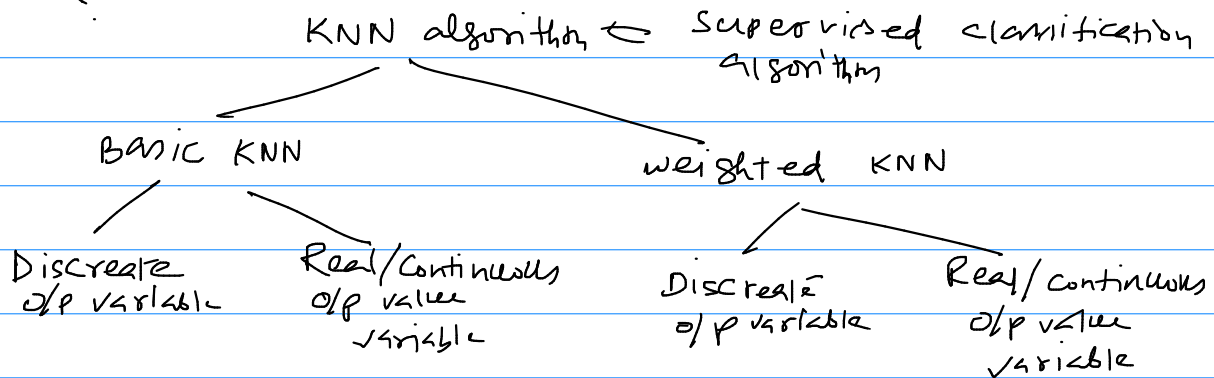 KNN algorithm ← Supervised classification
algorithm
Basic KNN
weighted KNN
Discreate
o/p variable
Real/continuous
o/p value
variable
Discreate
o/p variable
Real/continuous
o/p value
variable